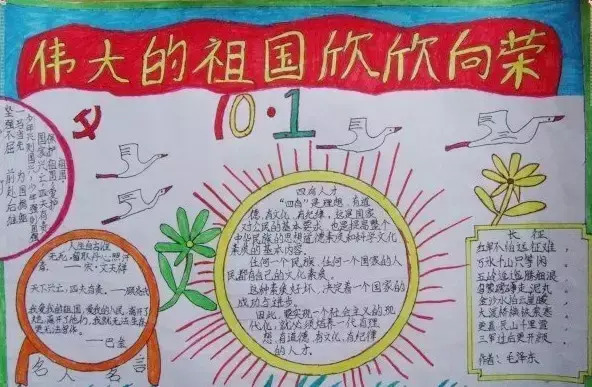 伟大的祖国欣欣向荣
10·1
坚强不屈 前赴后继
一马当先 为国捐躯
人生自古谁
无死,留取丹心照汗
青。 宋·文天祥
天下兴亡,匹夫有责。——顾炎武
我爱我的祖国,爱我的人民,离开了
她,离开了他们,我就无法生存,
更无法写作。
——巴金
名人名言
四有人才
“四有”是理想、有道
德、有文化、有纪律,这是国家
对公民的基本要求,也是提高整个
中华民族的思想道德素质和科学文化
素质的基本内容。
任何一个民族、任何一个国家的人
民都有自己的文化素质。
这种素质好坏,决定着一个国家的
成功与进步。
因此,要实现一个社会主义的现
代化,就必须培养一代有理
想、有道德、有文化、有纪律
的人才。
长征
红军不怕远征难,
万水千山只等闲
五岭逶迤腾细浪
乌蒙磅礴走泥丸
金沙水拍云崖暖
大渡桥横铁索寒
更喜岷山千里雪
三军过后尽开颜
作者:毛泽东